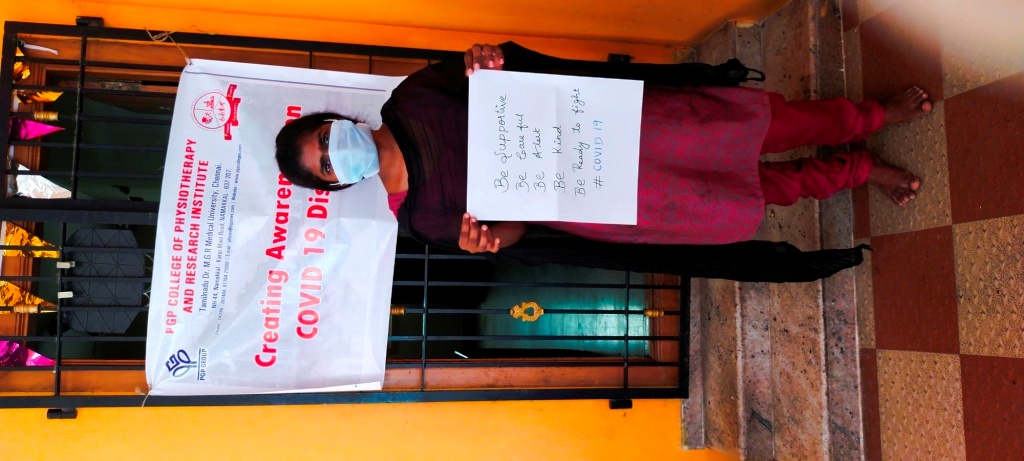 PGP COLLEGE OF PHYSIOTHERAPY
AND RESEARCH INSTITUTE
Tamilnadu Dr. M.G.R Medical University, Chennai.
NH-44, Namakkal - Karur Main Road, NAMAKKAL - 637 207.
PGP GROUP
Creating Awaren on
COVID 19 Dis
Be Supportive
Be Careful
Be Alert
Be Kind
Be Ready to fight
# COVID 19